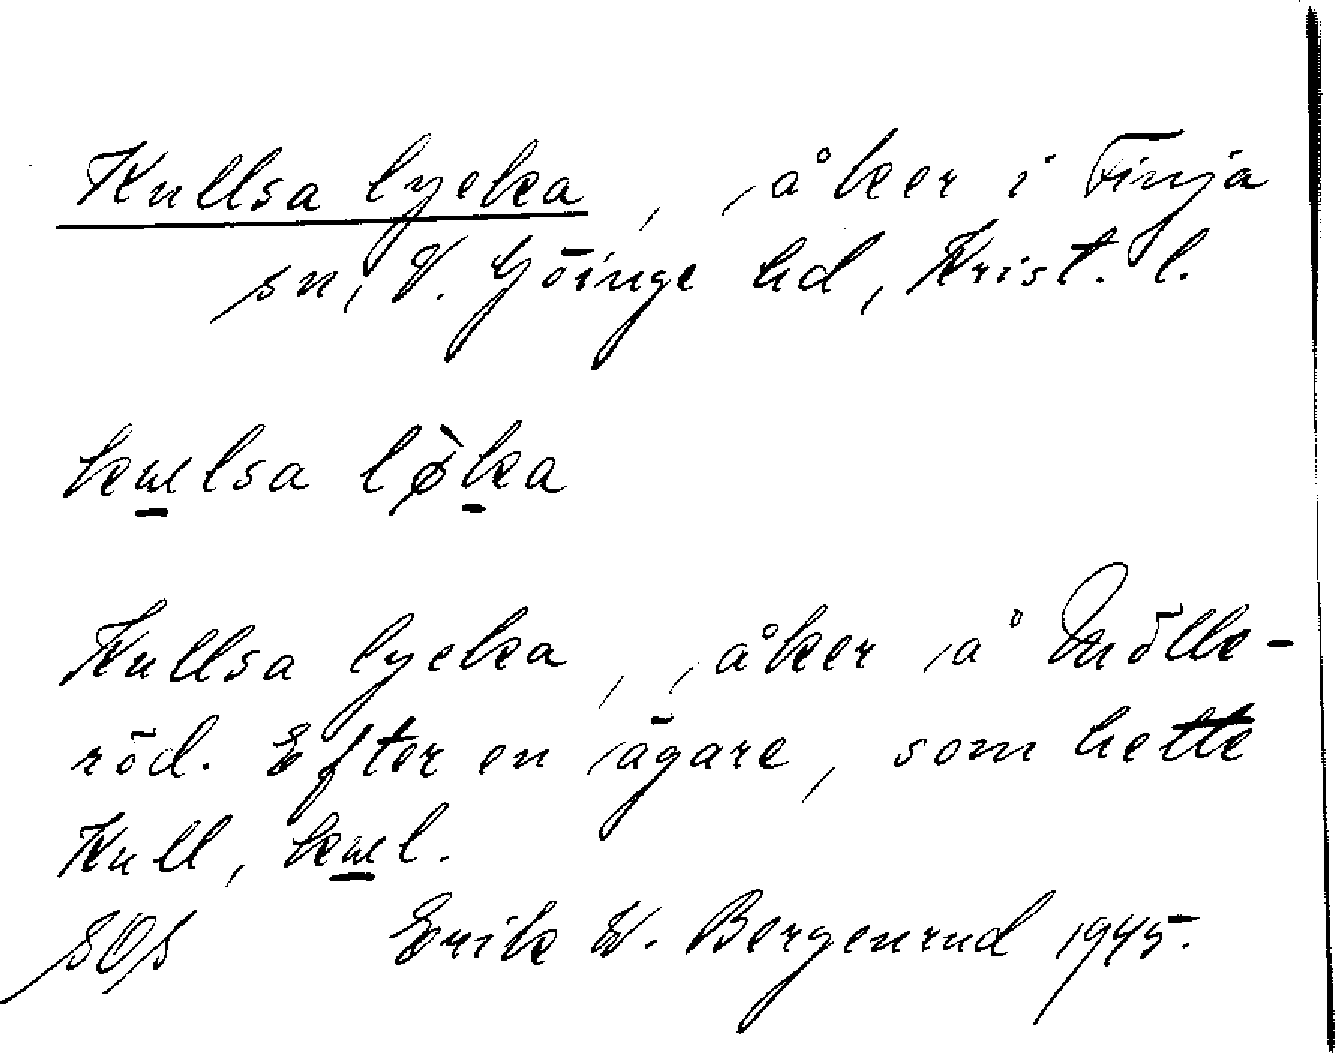 Kullsa lycka, åker i Finja
sn, V. Göinge hd, Krist. l.
kɯlsa lø̀ka
Kullsa lycka, åker å Mölle-
röd. Efter en ägare, som hette
Kull, kɯl.
SOS Erik W. Bergenrud 1945.